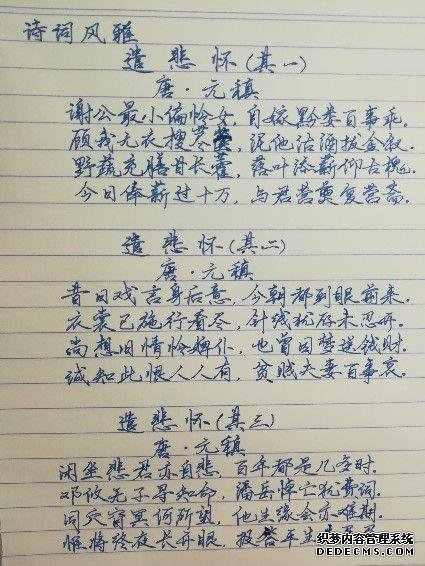 诗词风雅
遣悲怀(其一)
唐·元稹
谢公最小偏怜女,自嫁黔娄百事乖.
顾我无衣搜荩箧,泥他沽酒拔金钗.
野蔬充膳甘长藿,落叶添薪仰古槐.
今日俸薪过十万,与君营奠复营斋.
遣悲怀(其二)
唐·元稹
昔日戏言身后意,今朝都到眼前来.
衣裳已施行看尽,针线犹存未忍开.
尚想旧情怜婢仆,也曾因梦送钱财.
诚知此恨人人有,贫贱夫妻百事哀.
遣悲怀(其三)
唐·元稹
闲坐悲君亦自悲,百年都是几多时.
邓攸无子寻知命,潘岳悼亡犹费词.
同穴窅冥何所望,他生缘会亦难期.
惟将终夜长开眼,报答平生
织梦内容管理系统
DEDECMS.COM